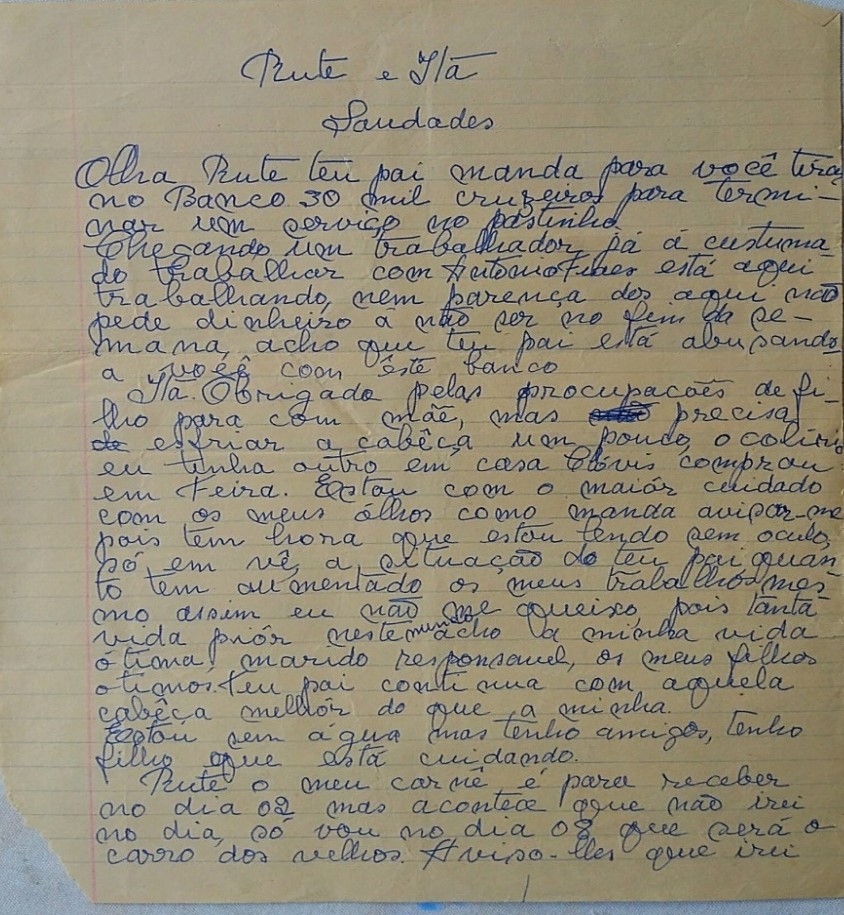 Rute e Itã
Saudades
Olha Rute teu pai manda para você tirar
no Banco 30 mil cruzeiros para termi-
nar um serviço no pastinho
Chegando um trabalhador, já á custuma-
do trabalhar com Antonio Fines está aqui
trabalhando, nem parença dos aqui não
pede dinheiro á não ser no fim da se-
mana, acho que teu pai está abusando
a você com êste banco
Itã. Obrigado pelas procupacões de fi-
lho para com mãe, mas precisa
esfriar a cabêça um pouco, o colirio
eu tinha outro em casa Clóvis comprou
em Feira. Estou com o maiór cuidado
com os meus ólhos como manda avisar-me
pois tem hora que estou tendo sem oculo,
só em vê, a situação do teu pai quan
to tem aumentado os meus trabalhos mes
mo assim eu não me queixo, pois tanta
vida piór neste mundo acho a minha vida
ótima, marido responsavel, os meus filhos
otimos. Teu pai continua com aquela
cabêça melhór do que a minha.
Estou sem água mas tenho amigos, tenho
filho que está cuidando.
Rute o meu carnê é para receber
no dia 02 mas acontece que não irei
no dia, só vou no dia 08 que será o
carro dos velhos. Aviso-lhes que irei